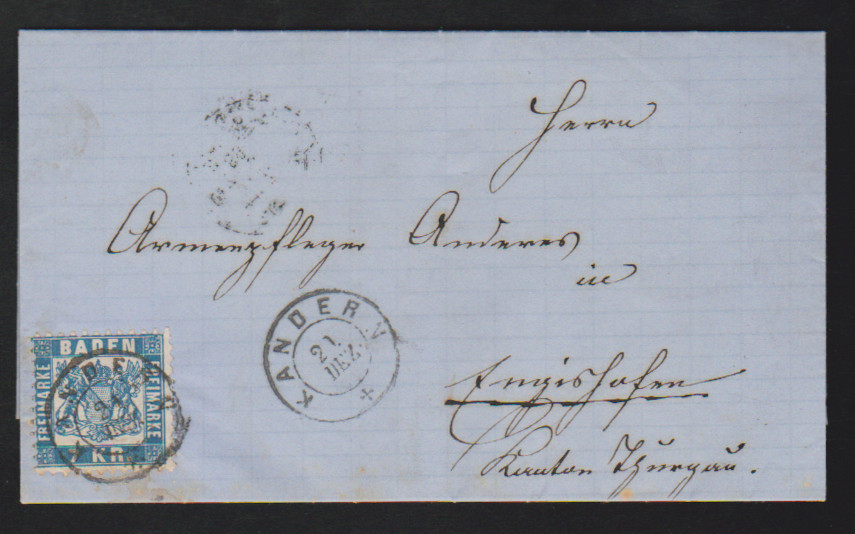 Herrn
Armenpfleger Anderes
in
KANDERN
21
DEZ.
BADEN
FREIMARKE
FREIMARKE
7 KR.
Engishofen
Kanton Thurgau.